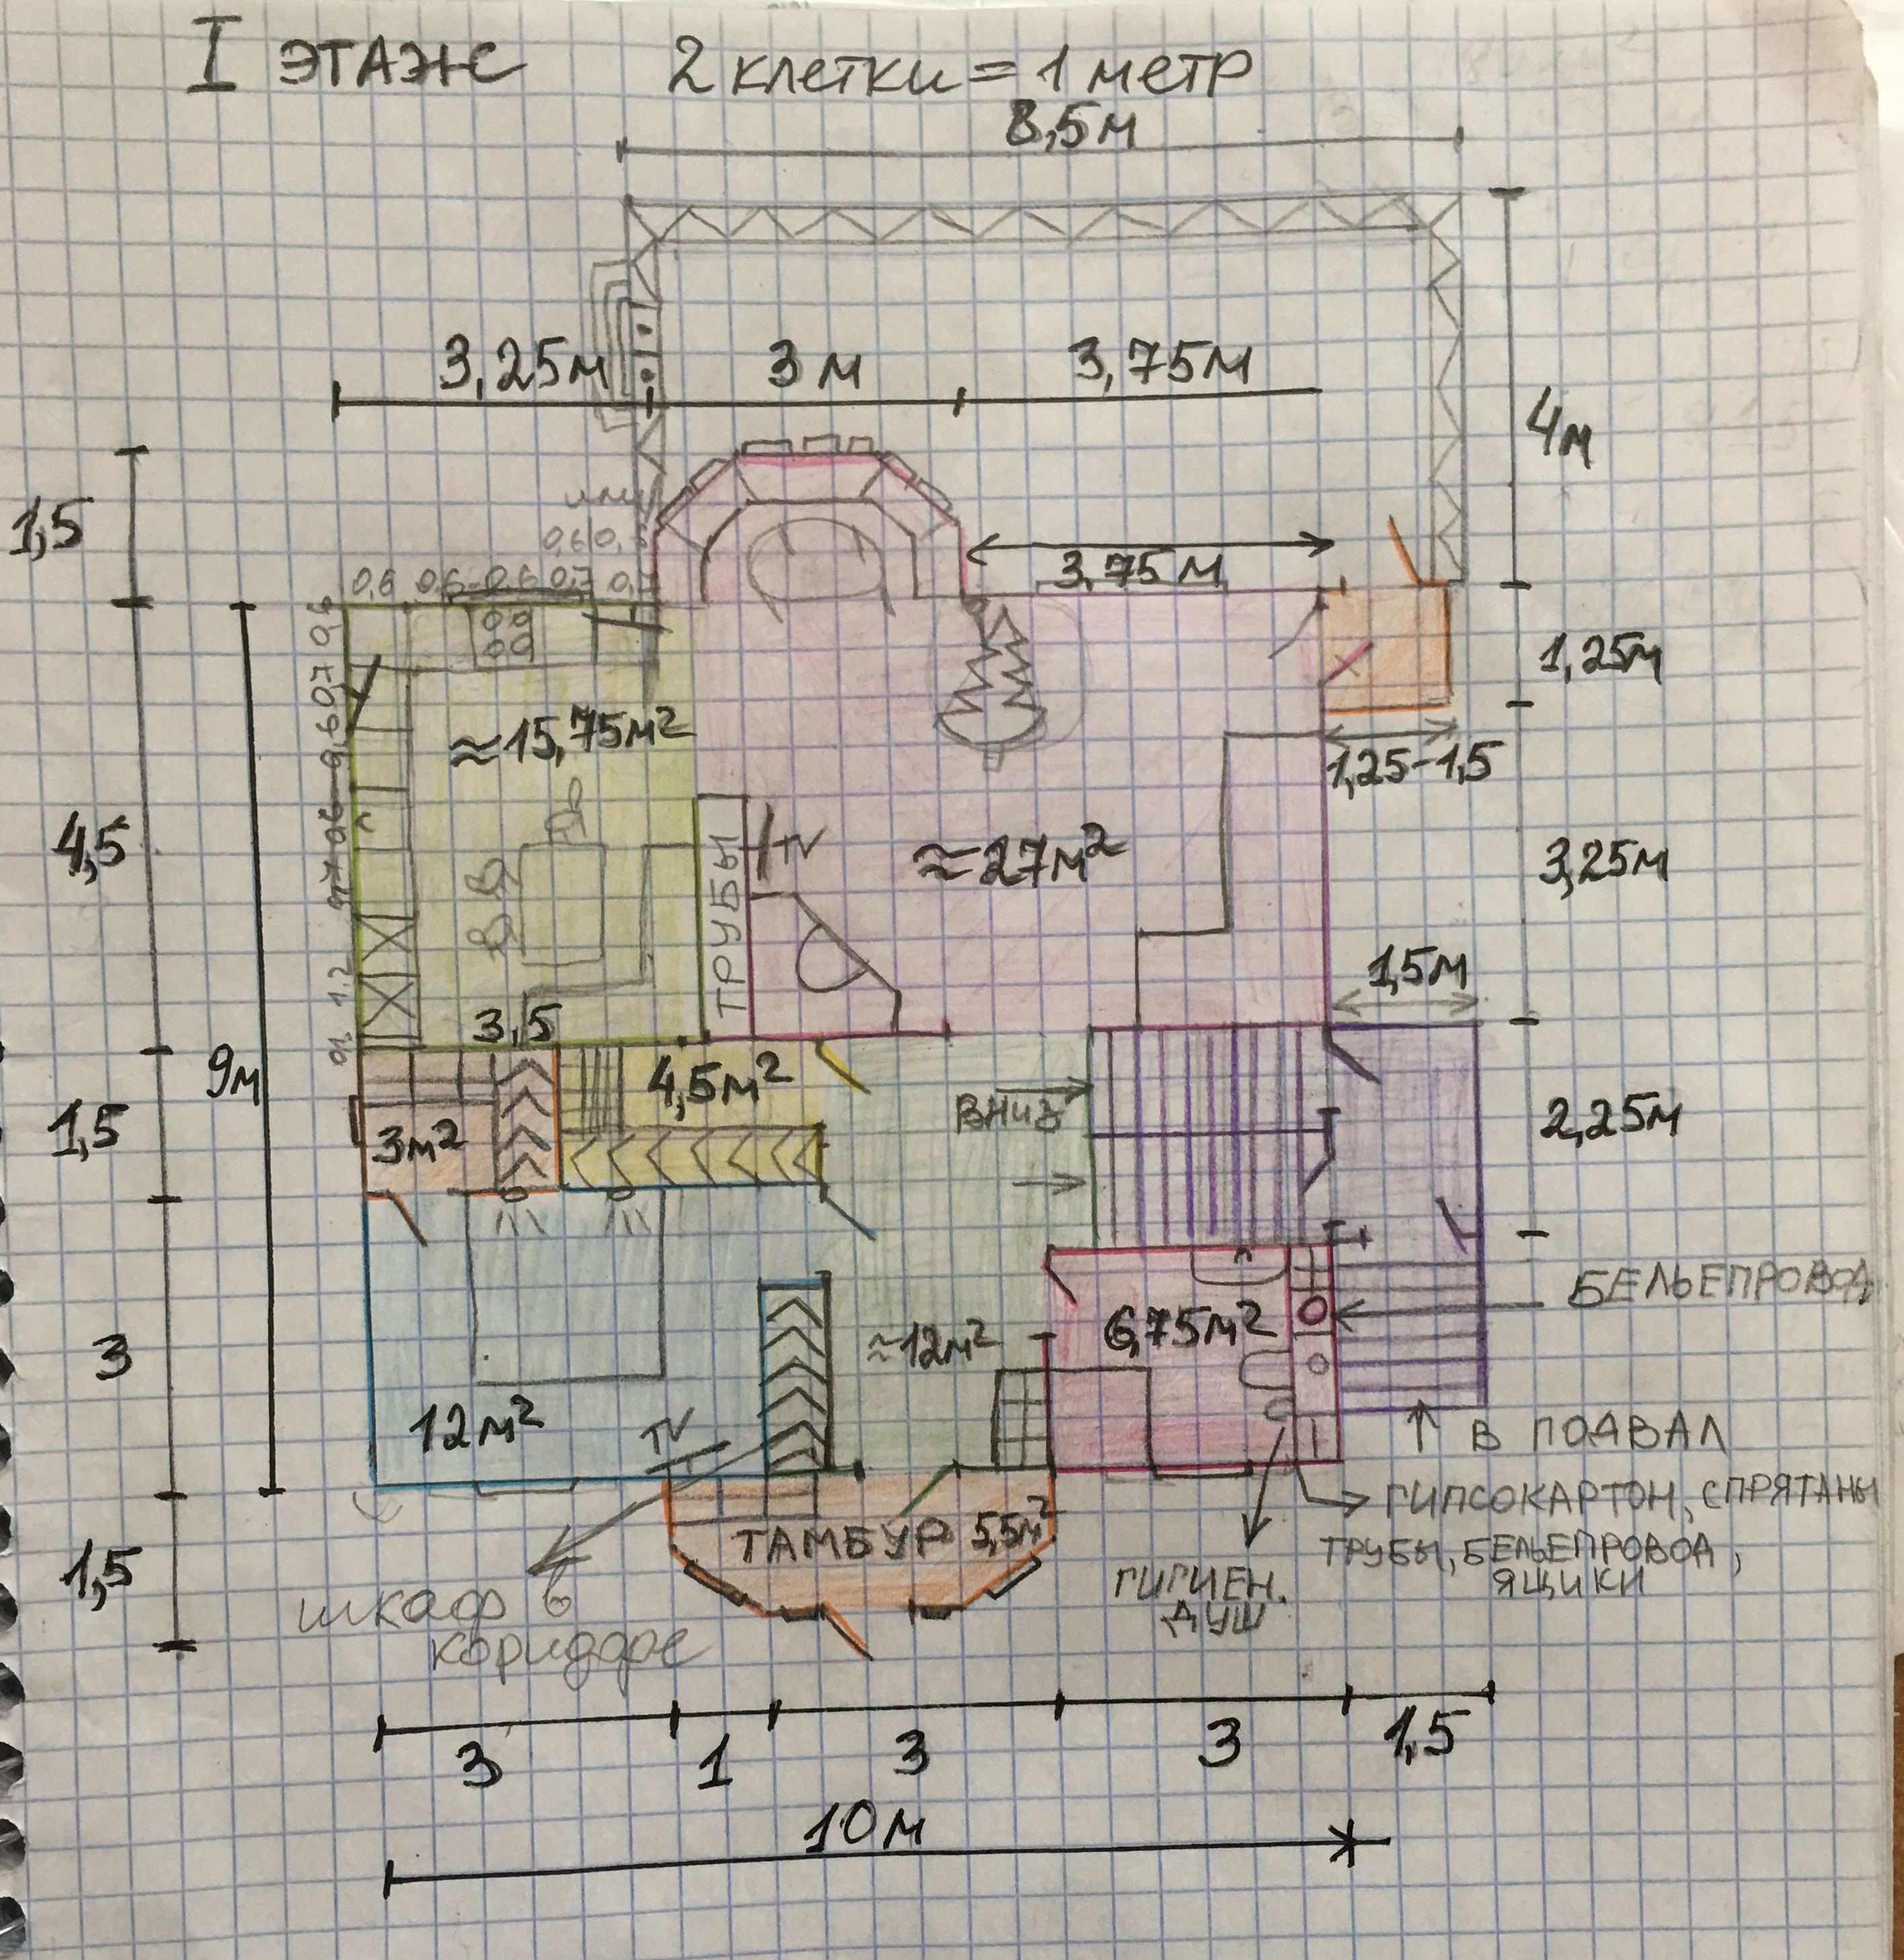 I ЭТАЖ 2 клетки = 1 метр
8,5м
3,25м 3м 3,75м
4м
1,5
3,75м
0,6 0,6 0,6 0,7 0,7
0,6
0,7
1,25м
≈15,75м²
1,25-1,5
4,5
ТРУБЫ
TV
≈27м²
3,25м
1,2
1,5м
3,5
9м
4,5м²
ВНИЗ
1,5
3м²
2,25м
БЕЛЬЕПРОВОД
≈12м²
6,75м²
3
12м²
TV
↑ В ПОДВАЛ
ГИПСОКАРТОН, СПРЯТАНЫ
ТРУБЫ, БЕЛЬЕПРОВОД,
ЯЩИКИ
ТАМБУР 5,5м²
1,5
ГИГИЕН.
ДУШ
шкаф в
коридоре
3 1 3 3 1,5
10м